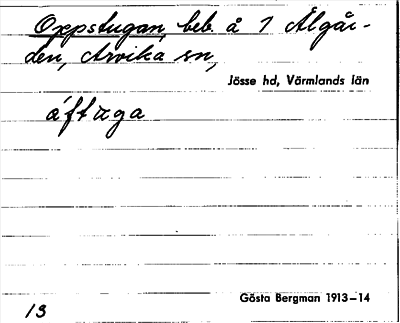 Oppstugan, beb. å 1 Ålgår-
den, Arvika sn,
Jösse hd, Värmlands län
Gösta Bergman 1913–14
13